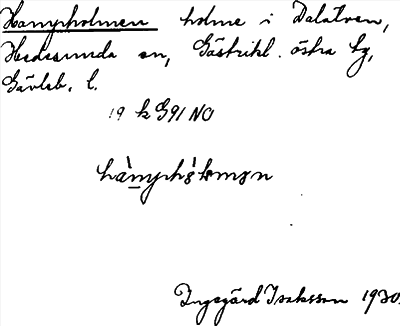 Hampholmen holme i Dalälven,
Hedesunda sn, Gästrikl. östra tg,
Gävleb. l.
19 k G91 NO
Ingegärd Isaksson 1930.